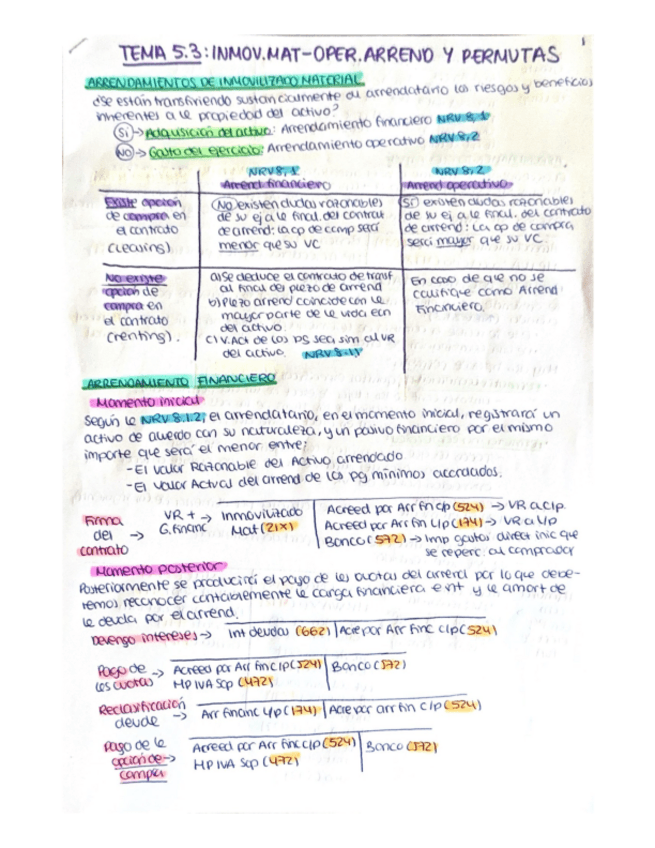 TEMA 5.3: INMOV.MAT-OPER.ARREND Y PERMUTAS
ARRENDAMIENTOS DE INMOVILIZADO MATERIAL
¿Se están transfiriendo sustancialmente al arrendatario los riesgos y beneficios
inherentes a la propiedad del activo?
Sí → Adquisición del activo: Arrendamiento financiero NRV 8,1
No → Gasto del ejercicio: Arrendamiento operativo NRV 8,2
NRV 8,1
Arrend financiero
NRV 8,2
Arrend operativo
Existe opción
de compra en
el contrato
(leasing).
No existen dudas razonables
de su ej a le final. del contrat
de arrend: La op de comp será
menor que su VC
Sí existen dudas razonables
de su ej a le final. del contrato
de arrend: La op de compra
será mayor que su VC
No existe
opción de
compra en
el contrato
(renting).
a) Se deduce el contrato de transf
al final del plazo de arrend
b) Plazo arrend coincide con la
mayor parte de la vida econ
del activo.
c) V.Act de los pg sea sim al VR
del activo. NRV 8.1
En caso de que no se
califique como Arrend
Financiero.
ARRENDAMIENTO FINANCIERO
Momento inicial
Según la NRV 8.1.2, el arrendatario, en el momento inicial, registrará un
activo de acuerdo con su naturaleza, y un pasivo financiero por el mismo
importe que será el menor entre:
-El Valor Razonable del Activo arrendado
-El Valor Actual del arrend de los pg mínimos acordados.
Firma
del →
contrato
VR + → Inmovilizado
G.financ Mat (21X)
Acreed por Arr fin c/p (524) → VR a c/p.
Acreed por Arr fin l/p (174) → VR a l/p
Banco (572) → Imp gastos direct inic que
se reperc. al comprador
Momento posterior
Posteriormente se producirá el pago de las cuotas del arrend por lo que debe-
remos reconocer contablemente la carga financiera e int y la amort de
la deuda por el arrend.
Devengo intereses → Int deudas (662) | Acre por Arr Finc c/p (524)
Pago de → Acreed por Arr fin c/p (524) | Banco (572)
las cuotas HP IVA Sop (472)
Reclasificación
deuda → Arr financ l/p (174) | Acre por arr fin c/p (524)
Pago de la
opción de →
compra
Acreed por Arr fin c/p (524) | Banco (572)
HP IVA Sop (472)